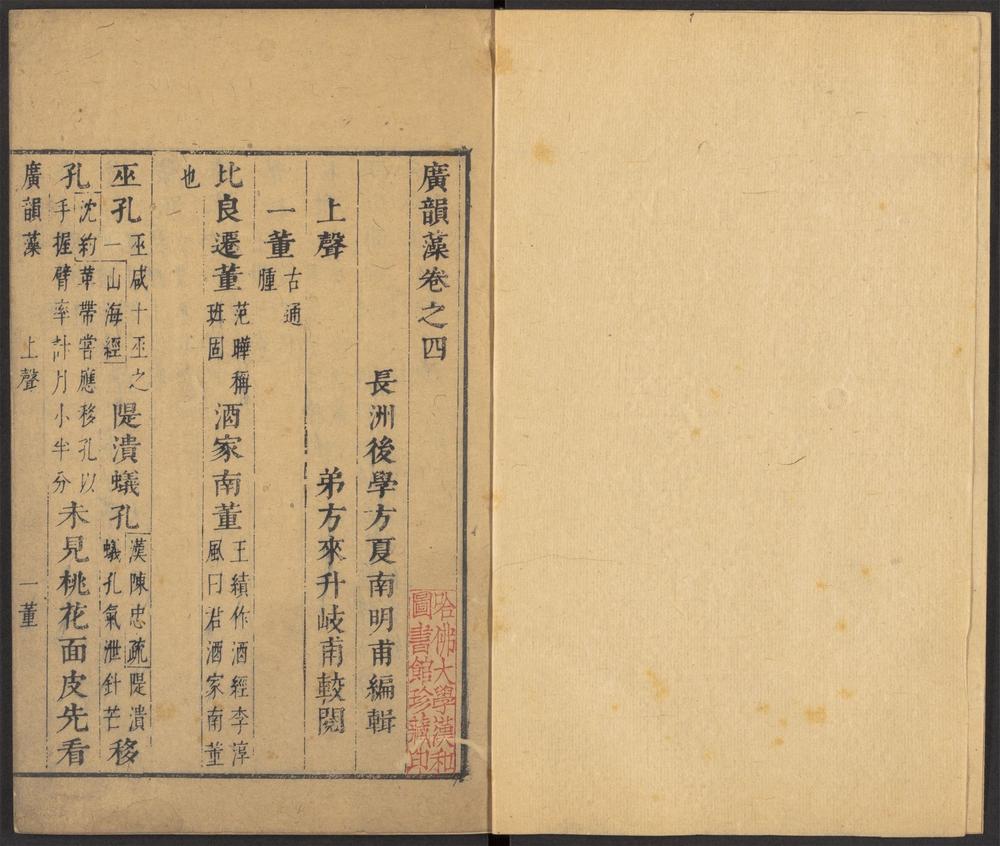 廣韻藻卷之四
長洲後學方夏南明甫編輯
弟方來升岐甫較閱
上聲
一董
古通
腫
比良遷董
范曄稱
班固
酒家南董
王績作酒經李淳
風曰君酒家南董
也
巫孔
巫咸十巫之
一山海經
隄潰蟻孔
漢陳忠疏隄潰
蟻孔氣泄針芒
移
孔
沈約革帶嘗應移孔以
手握臂率計月小半分
未見桃花面皮先看
廣韻藻
上聲
一董
哈佛大學漢和
圖書館珍藏印